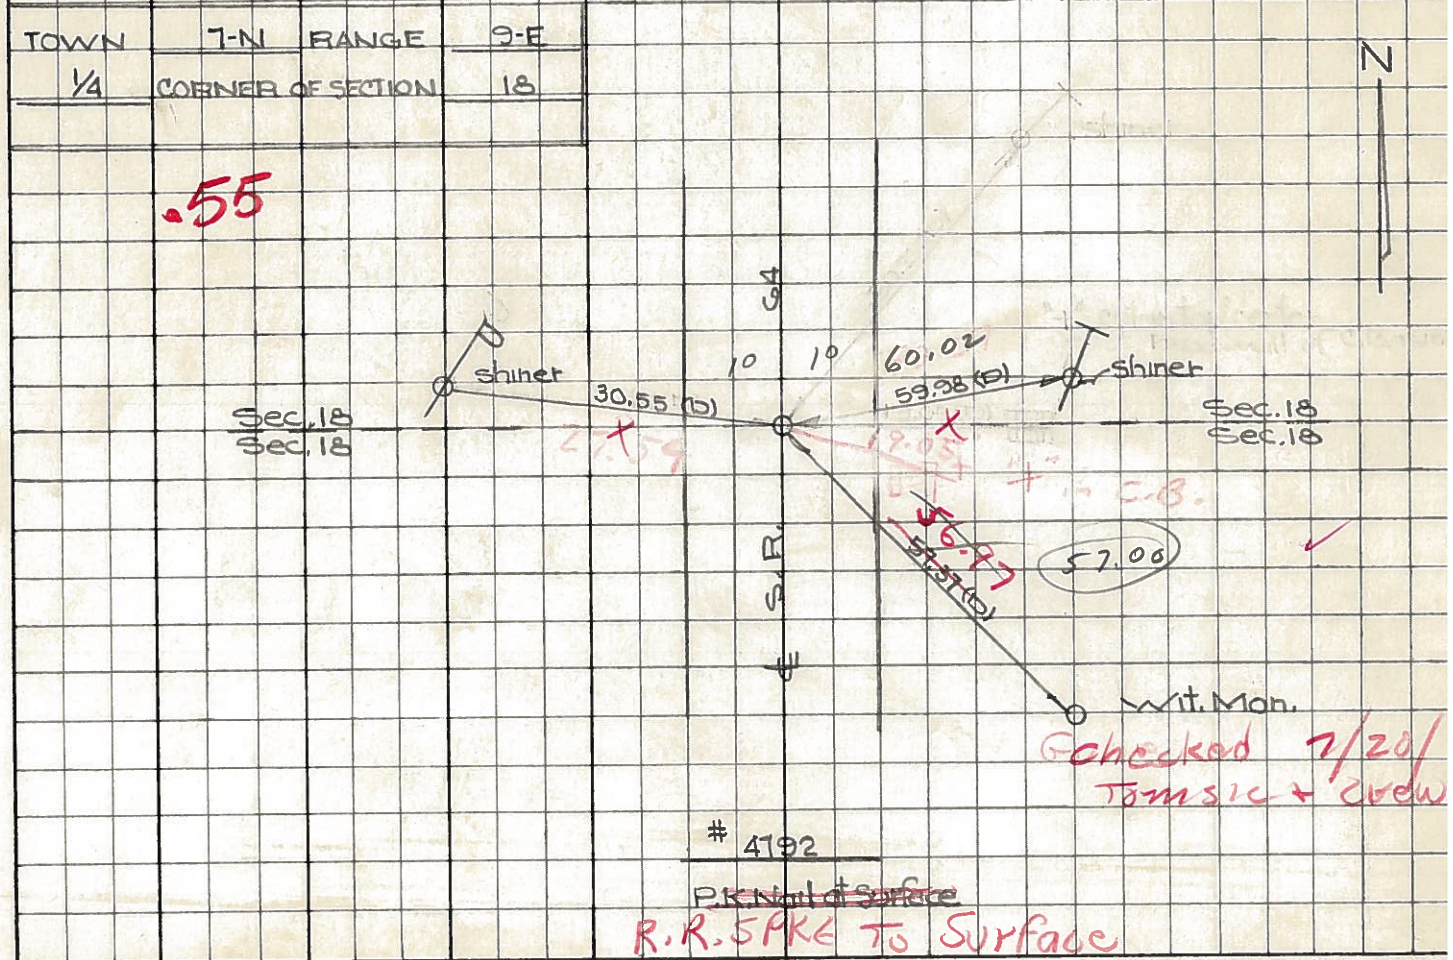 TOWN 7-N RANGE 9-E
1/4 CORNER OF SECTION 18
N
.55
64
1º 1º 60.02
shiner 30.55 (D) 59.98 (D) shiner
Sec. 18 Sec. 18
Sec. 18 Sec. 18
27.59 19.05
"+" in C.B.
S.R. 56.97 57.00
57.37 (D)
Wit. Mon.
checked 7/20/
Tomsic + Crew
# 4792
P.K. Nail at Surface
R.R. SPKE To Surface